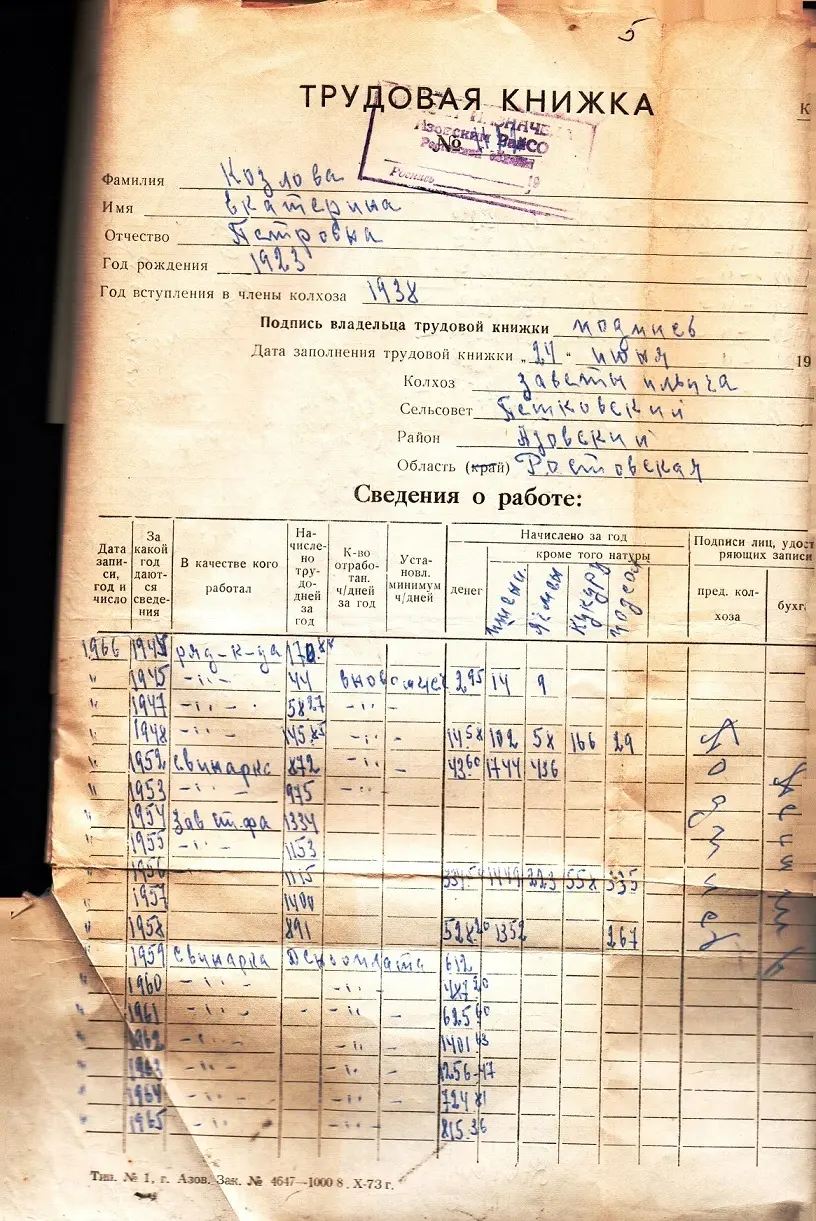 5
ТРУДОВАЯ КНИЖКА
К
НАЗНАЧЕ
Азовским РайСО
№
Роспись 19
Фамилия Козлова
Имя Екатерина
Отчество Петровна
Год рождения 1923
Год вступления в члены колхоза 1938
Подпись владельца трудовой книжки
Дата заполнения трудовой книжки „24“ июня 19
Колхоз заветы ильича
Сельсовет Пешковский
Район Азовский
Область (край) Ростовская
Сведения о работе:
Дата запи-си, год и число
За какой год дают-ся сведе-ния
В качестве кого работал
На-числе-но тру-до-дней за год
К-во отрабо-тан. ч/дней за год
Уста-новл. минимум ч/дней
Начислено за год
денег
кроме того натуры
пшени. Ячмен Кукуру
Подписи лиц, удост ряющих записи
пред. кол-хоза
бухг.
1966 ряд-к-ца
" 1945 -"- 44 2 95 14 9
" 1947 -"- 58 27 -"-
" 1948 -"- 145 85 -"- 14 58 102 58 166 29
" 1952 свинарка 872 -"- - 43 60 1744 436
" 1953 -"- 975 -"-
" 1954 Зав ст.фа 1334
" 1955 -"- 1153
" 1956 1115 1449 223 558 335
" 1957 1400
" 1958 891 528 20 1352 267
" 1959 свинарка Деньоплата 612
" 1960 -"- -"- 20
" 1961 -"- - -"- - 625 60
" 1962 -"- -"- - 1401 63
" 1963 -"- -"- - 1256-47
" 1964 -"- -"- - 724 81
" 1965 -"- -"- - 815.36
Тип. № 1, г. Азов. Зак. № 4647—1000 8. X-73 г.